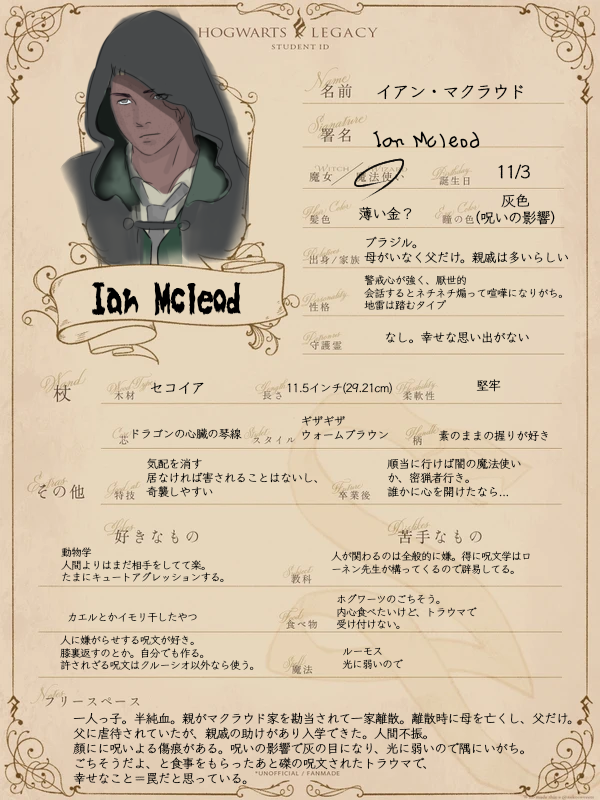 HOGWARTS LEGACY
STUDENT ID
Name
名前
イアン・マクラウド
Signature
署名
Ian Mcleod
WITCH WIZARD
魔女／魔法使い
Birthday
誕生日
11/3
Hair Color
髪色
薄い金？
Eye Color
瞳の色
灰色
(呪いの影響)
出身/家族
ブラジル。
母がいなく父だけ。親戚は多いらしい
Personality
性格
警戒心が強く、厭世的
会話するとネチネチ煽って喧嘩になりがち。
地雷は踏むタイプ
Patronus
守護霊
なし。幸せな思い出がない
Ian Mcleod
Wand
杖
Wood Type
木材
セコイア
Length
長さ
11.5インチ(29.21cm)
Flexibility
柔軟性
堅牢
Core
芯
ドラゴンの心臓の琴線
Style
スタイル
ギザギザ
ウォームブラウン
Handle
柄
素のままの握りが好き
Extras
その他
Good at
特技
気配を消す
居なければ害されることはないし、
奇襲しやすい
Future
卒業後
順当に行けば闇の魔法使い
か、密猟者行き。
誰かに心を開けたなら...
Likes
好きなもの
Dislikes
苦手なもの
動物学
人間よりはまだ相手をしてて楽。
たまにキュートアグレッションする。
Subject
教科
人が関わるのは全般的に嫌。得に呪文学はロ
ーネン先生が構ってくるので辟易してる。
カエルとかイモリ干したやつ
Food
食べ物
ホグワーツのごちそう。
内心食べたいけど、トラウマで
受け付けない。
人に嫌がらせする呪文が好き。
膝裏返すのとか。自分でも作る。
許されざる呪文はクルーシオ以外なら使う。
Spell
魔法
ルーモス
光に弱いので
Notes
フリースペース
一人っ子。半純血。親がマクラウド家を勘当されて一家離散。離散時に母を亡くし、父だけ。
父に虐待されていたが、親戚の助けがあり入学できた。人間不振。
顔にに呪いよる傷痕がある。呪いの影響で灰の目になり、光に弱いので隅にいがち。
ごちそうだよ、と食事をもらったあと磔の呪文されたトラウマで、
幸せなこと＝罠だと思っている。
*UNOFFICIAL / FANMADE